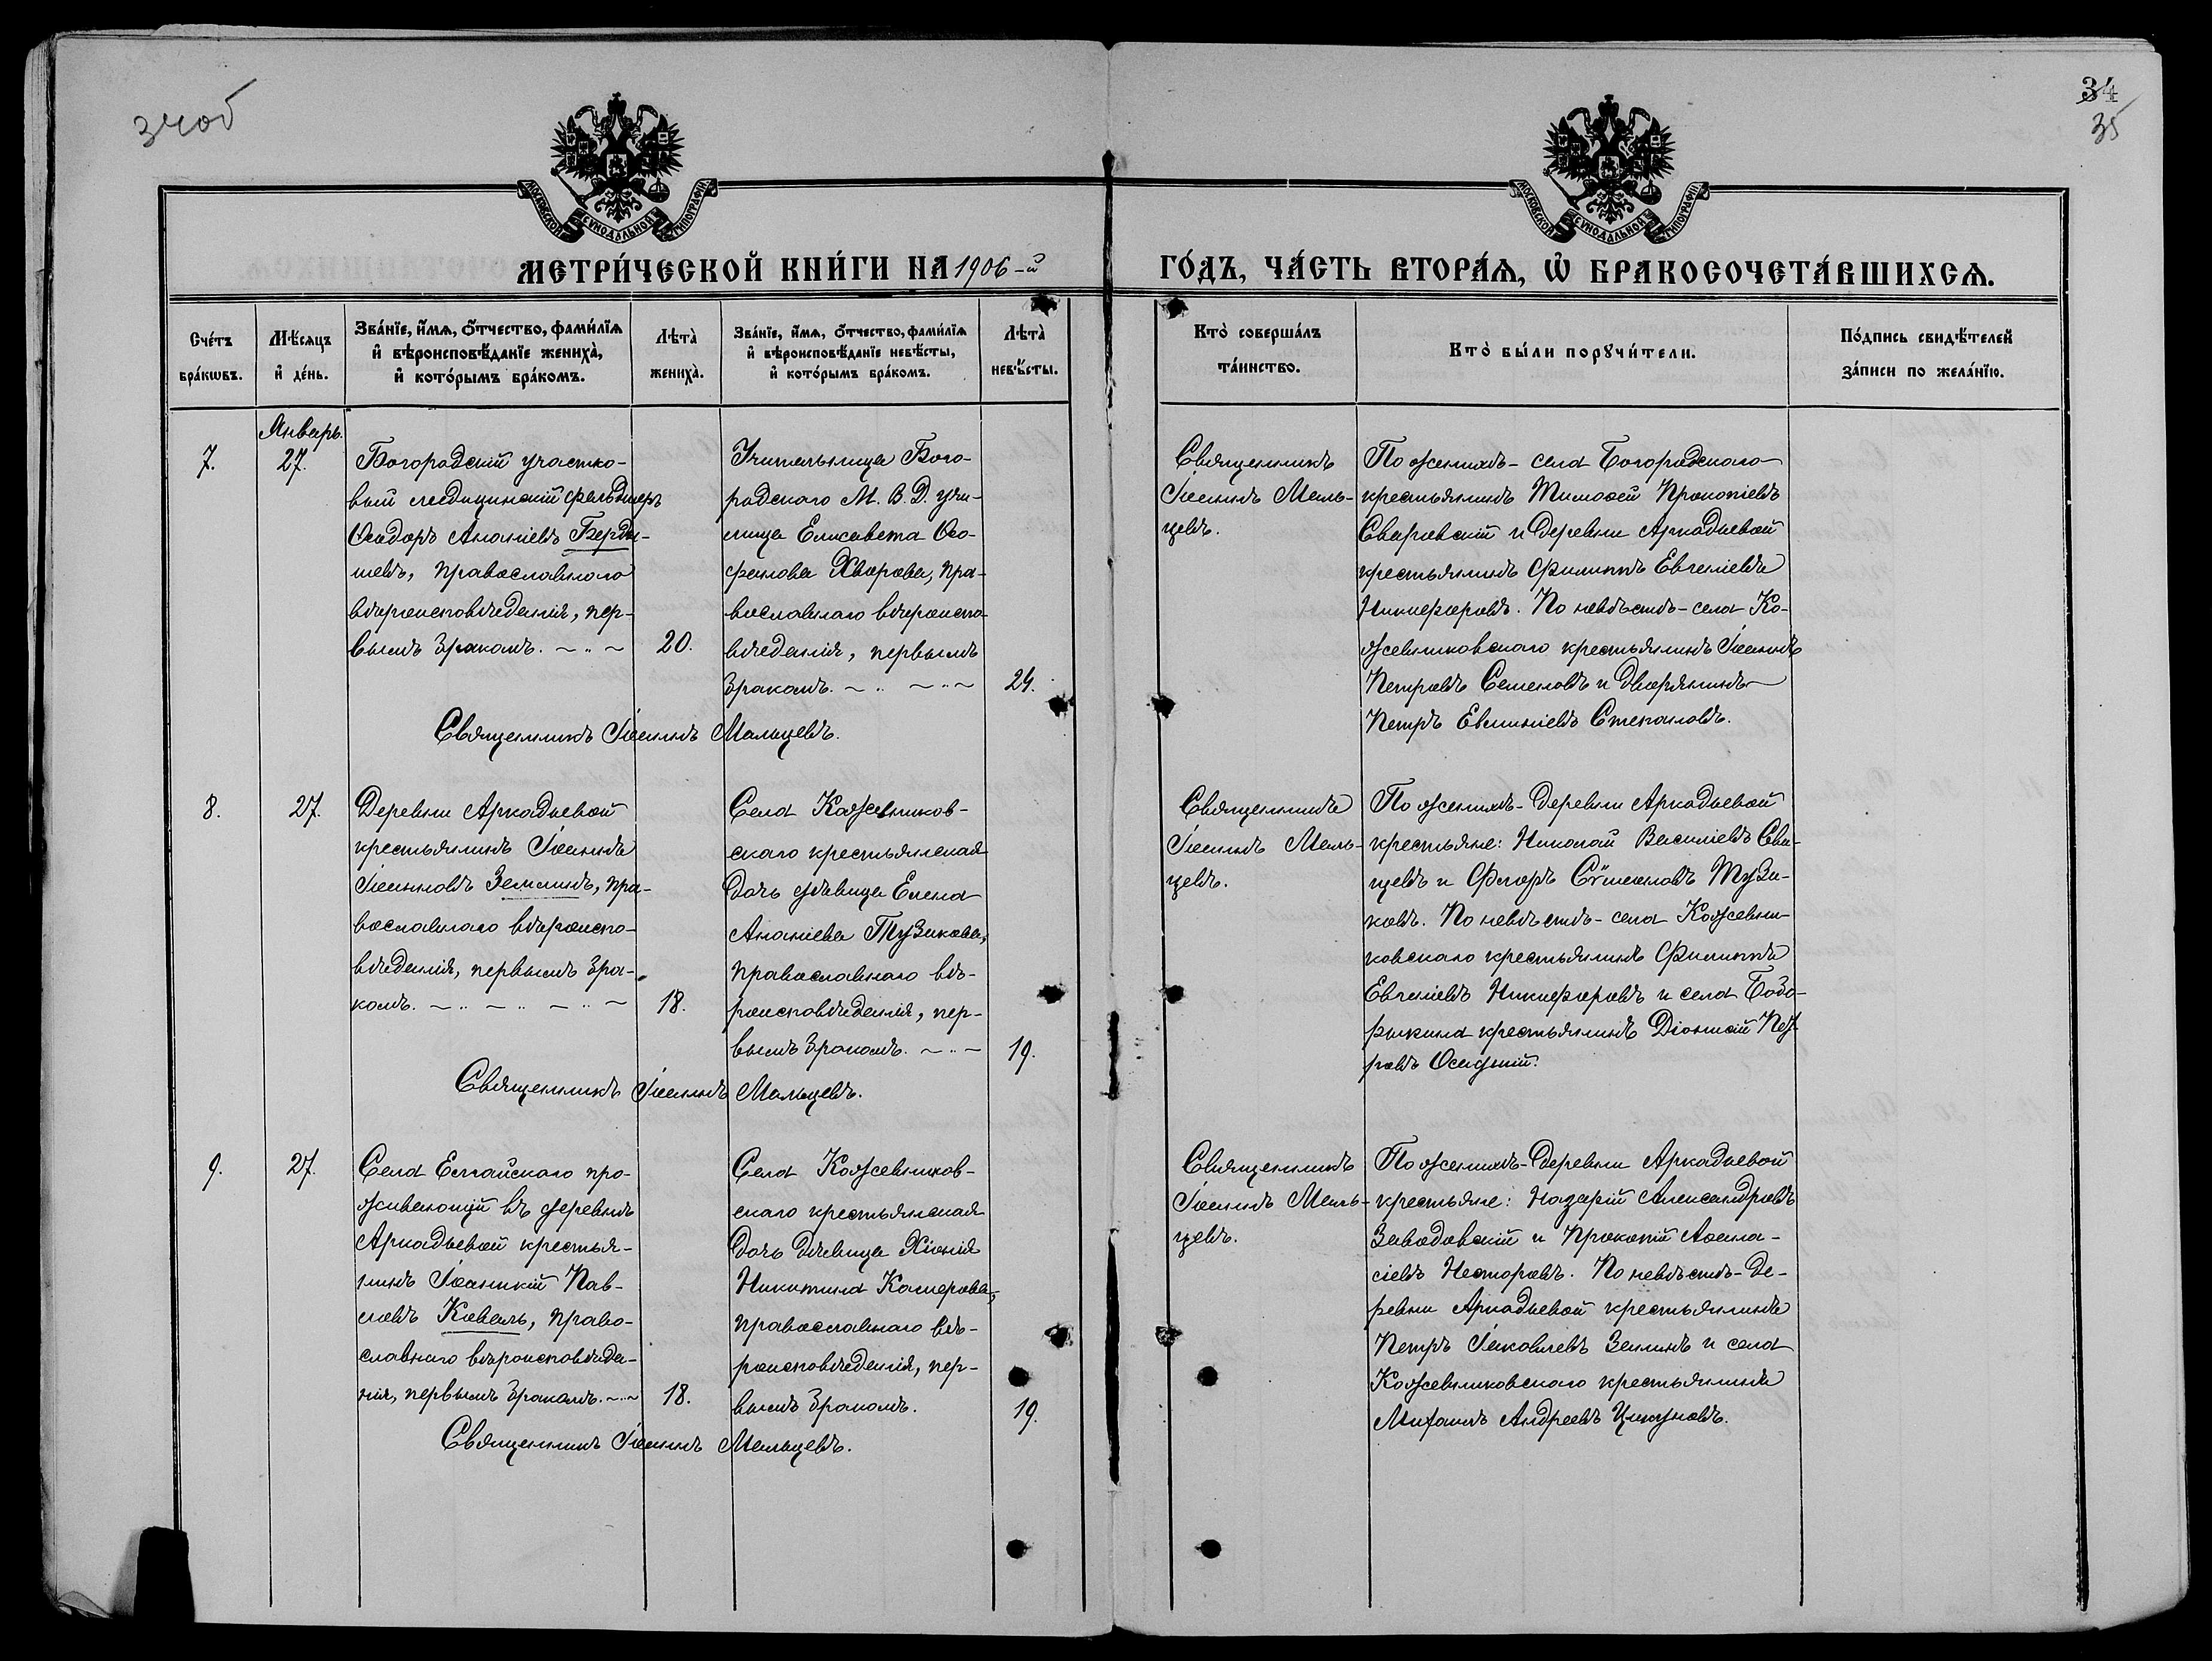 34об
34
35
МОСКОВСКОЙ СУНОДАЛЬНОЙ ТИПОГРАФІИ
МОСКОВСКОЙ СУНОДАЛЬНОЙ ТИПОГРАФІИ
МЕТРИ́ЧЕСКОЙ КНИ́ГИ НА 1906-й
ГО́ДЪ, ЧА́СТЬ ВТОРА́Ѧ, Ѽ БРАКОСОЧЕТА́ВШИХСѦ.
Сче́тъ бра́кѡвъ.
Мѣ́сяцъ и҆ де́нь.
Зва́нїе, и҆́мѧ, ѻ҆́тчество, фами́лїѧ и҆ вѣроисповѣ́данїе жениха̀, и҆ кото́рымъ бра́комъ.
Лѣта̀ жениха̀.
Зва́нїе, и҆́мѧ, ѻ҆́тчество, фами́лїѧ и҆ вѣроисповѣ́данїе невѣ́сты, и҆ кото́рымъ бра́комъ.
Лѣта̀ невѣ́сты.
Кто̀ соверша́лъ та́инство.
Кто̀ бы́ли порꙋчи́тели.
По́дпись свидѣ́телей за́писи по жела́нїю.
Январь.
7.
27.
Богородскій участко-
вый медицинскій фельдшеръ
Ѳеодоръ Ананіевъ Берды-
шевъ, православнаго
вѣроисповѣданія, пер-
вымъ бракомъ.
20.
Учительница Бого-
родскаго М. В. Д. учи-
лища Елисавета Ѳео-
фанова Хворова, пра-
вославнаго вѣроиспо-
вѣданія, первымъ
бракомъ.
24.
Священникъ
Іоаннъ Маль-
цевъ.
По женихѣ - села Богородскаго
крестьянинъ Тимоѳей Прокопіевъ
Сваровскій и деревни Аркадьевой
крестьянинъ Филиппъ Евгеніевъ
Никифоровъ. По невѣстѣ - села Ко-
жевниковскаго крестьянинъ Іоаннъ
Петровъ Семеновъ и дворянинъ
Петръ Евѳиміевъ Степановъ.
Священникъ Іоаннъ Мальцевъ.
8.
27.
Деревни Аркадьевой
крестьянинъ Іоаннъ
Іоанновъ Земинъ, пра-
вославнаго вѣроиспо-
вѣданія, первымъ бра-
комъ.
18.
Села Кожевников-
скаго крестьянская
дочь дѣвица Елена
Ананіева Тузикова,
православнаго вѣ-
роисповѣданія, пер-
вымъ бракомъ.
19.
Священникъ
Іоаннъ Маль-
цевъ.
По женихѣ - деревни Аркадьевой
крестьяне: Николай Василіевъ Сви-
цевъ и Флоръ Сѷмеоновъ Тузи-
ковъ. По невѣстѣ - села Кожевни-
ковскаго крестьянинъ Филиппъ
Евгеніевъ Никифоровъ и села Бобо-
рыкина крестьянинъ Діонисій Пет-
ровъ
Священникъ Іоаннъ Мальцевъ.
9.
27.
Села Елгайскаго про-
живающій въ деревнѣ
Аркадьевой крестья-
нинъ Іоанникій Пав-
ловъ Коваль, право-
славнаго вѣроисповѣда-
нія, первымъ бракомъ.
18.
Села Кожевников-
скаго крестьянская
дочь дѣвица Хіонія
Никитина Комерова,
православнаго вѣ-
роисповѣданія, пер-
вымъ бракомъ.
19.
Священникъ
Іоаннъ Маль-
цевъ.
По женихѣ - деревни Аркадьевой
крестьяне: Назарій Александровъ
Заводовскій и Прокопій Аѳана-
сіевъ Несторовъ. По невѣстѣ - де-
ревни Аркадьевой крестьянинъ
Петръ Іаковлевъ Земинъ и села
Кожевниковскаго крестьянинъ
Михаилъ Андреевъ Цикуновъ.
Священникъ Іоаннъ Мальцевъ.